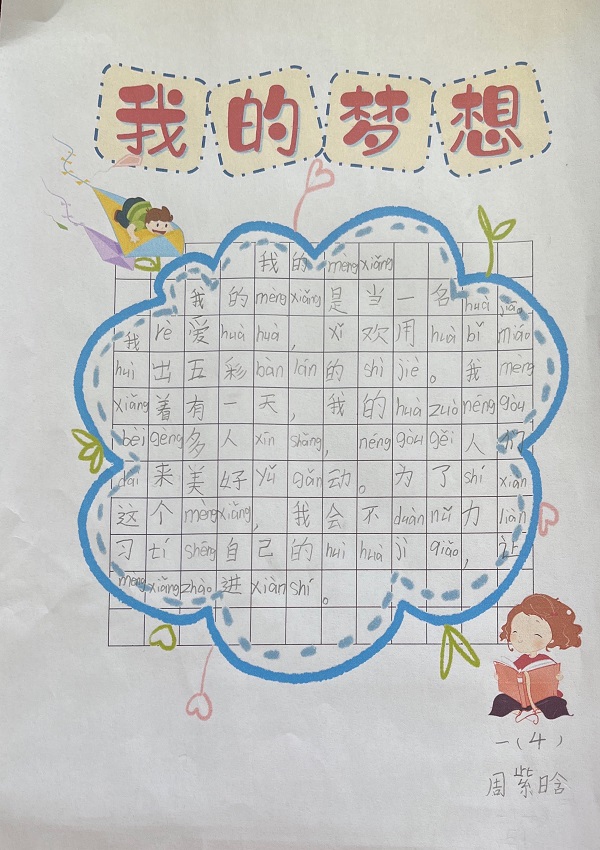 我的梦想
我的mèngxiǎng
我的mèngxiǎng是当一名huà jiā。
我rè爱huà huà，xǐ欢用huà bǐ miáo
huì出五彩bān lán的shì jiè。我mèng
xiǎng着有一天，我的huà zuò néng gòu
bèi gèng多人xīn shǎng，néng gòu gěi人们
dài来美好yǔ gǎn动。为了shí xiàn
这个mèngxiǎng，我会不duàn nǔ力liàn
习tí shēng自己的huì huà jì qiǎo，让
mèng xiǎng zhào进xiàn shí。
一（4）
周紫晗